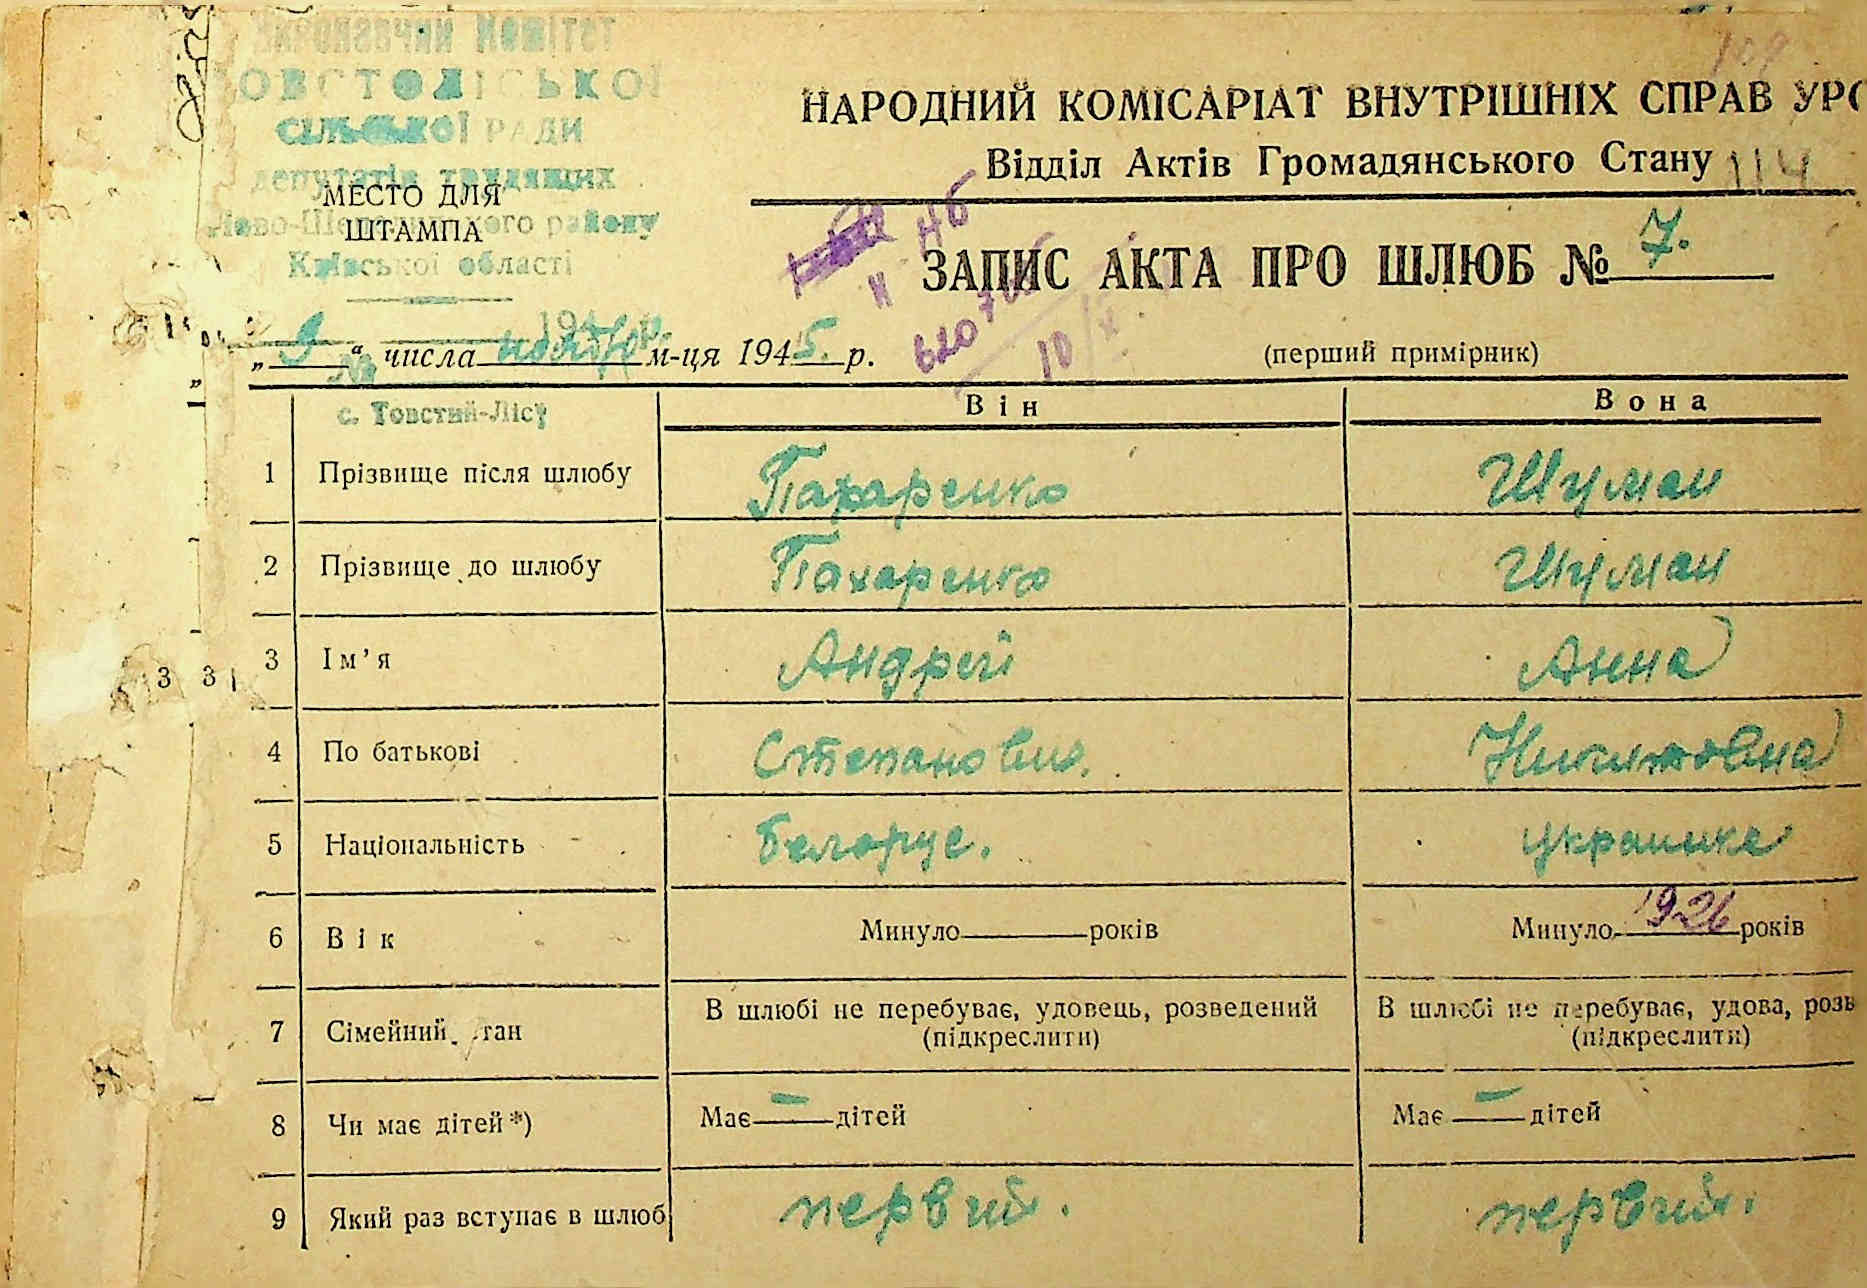 Виконавчий Комітет
ТОВСТОЛІСЬКОЇ
СІЛЬСЬКОЇ РАДИ
депутатів трудящих
Ново-Шепелицького району
Київської області
194 р.
№
с. Товстий-Ліс
МЕСТО ДЛЯ
ШТАМПА
109
НАРОДНИЙ КОМІСАРІАТ ВНУТРІШНІХ СПРАВ УРС
Відділ Актів Громадянського Стану 114
ЗАПИС АКТА ПРО ШЛЮБ № 7.
„ 9 “ числа ноября м-ця 1945. р.
(перший примірник)
Він Вона
1 Прізвище після шлюбу Пахаренко Шуман
2 Прізвище до шлюбу Пахаренко Шуман
3 Ім’я Андрей Анна
4 По батькові Степанович. Никитовна
5 Національність Белорус. украинка
6 Вік Минуло років Минуло 1926 років
7 Сімейний стан В шлюбі не перебуває, удовець, розведений (підкреслити) В шлюбі не перебуває, удова, розв (підкреслити)
8 Чи має дітей*) Має — дітей Має — дітей
9 Який раз вступає в шлюб первий. первий.